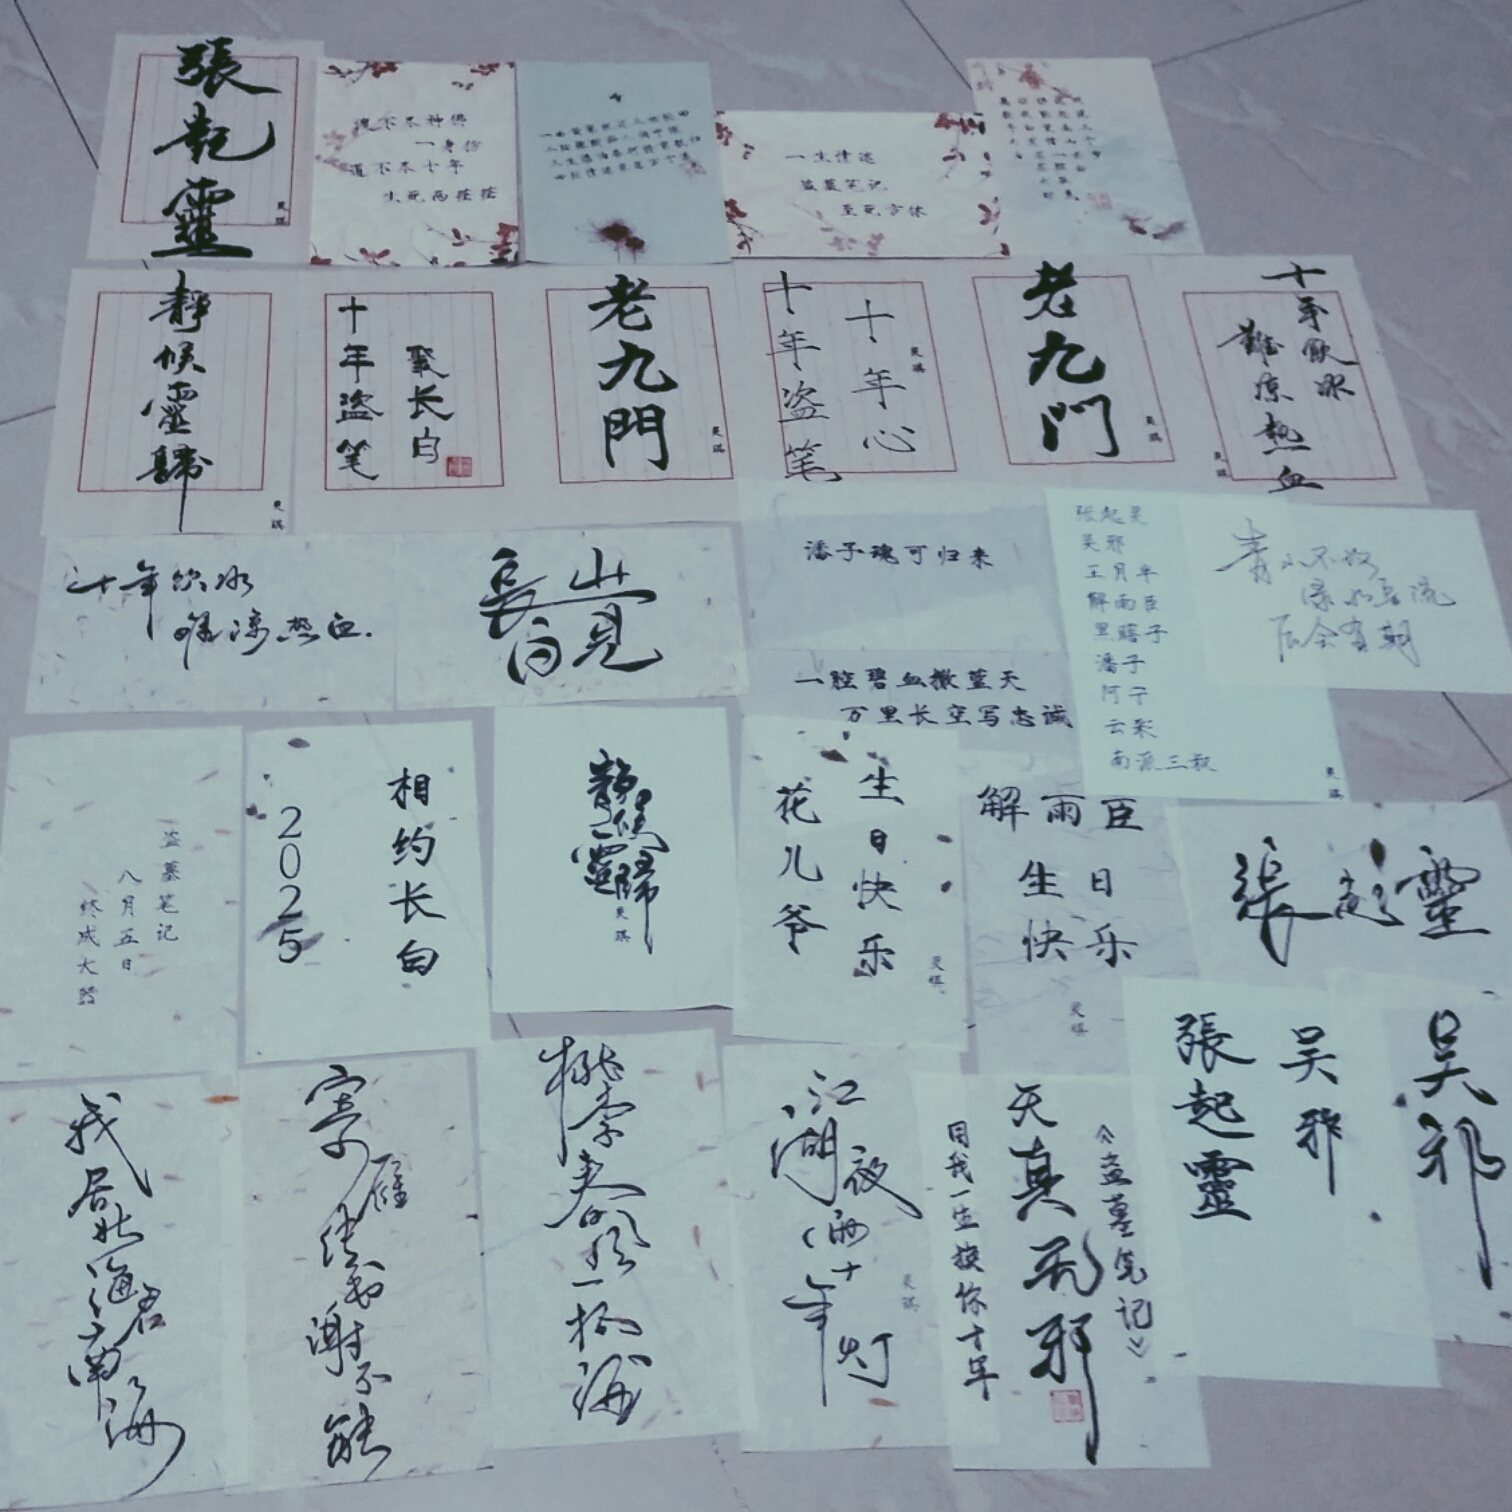 張起靈
道不尽神佛
一身伤
道不尽十年
生死两茫茫
一生情迷
盗墓笔记
至死方休
靜候靈歸
十年盗笔
聚长白
老九門
十年盗笔
十年心
老九门
十年飲冰
難凉热血
十年饮冰
难凉热血.
長白山見
潘子魂可归来
一腔碧血撒蓝天
万里长空写忠诚
张起灵
吴邪
王月半
解雨臣
黑瞎子
潘子
阿宁
云彩
南派三叔
青山不改
绿水长流
后会有期
盗墓笔记
八月五日
终成大器
相约长白
2025
靜候靈歸
生日快乐
花儿爷
解雨臣
生日
快乐
張起靈
我居北海君南海
寄雁传书谢不能
桃李春风一杯酒
江湖夜雨十年灯
《盗墓笔记》
天真無邪
用我一生换你十年
吴邪
張起靈
吴邪